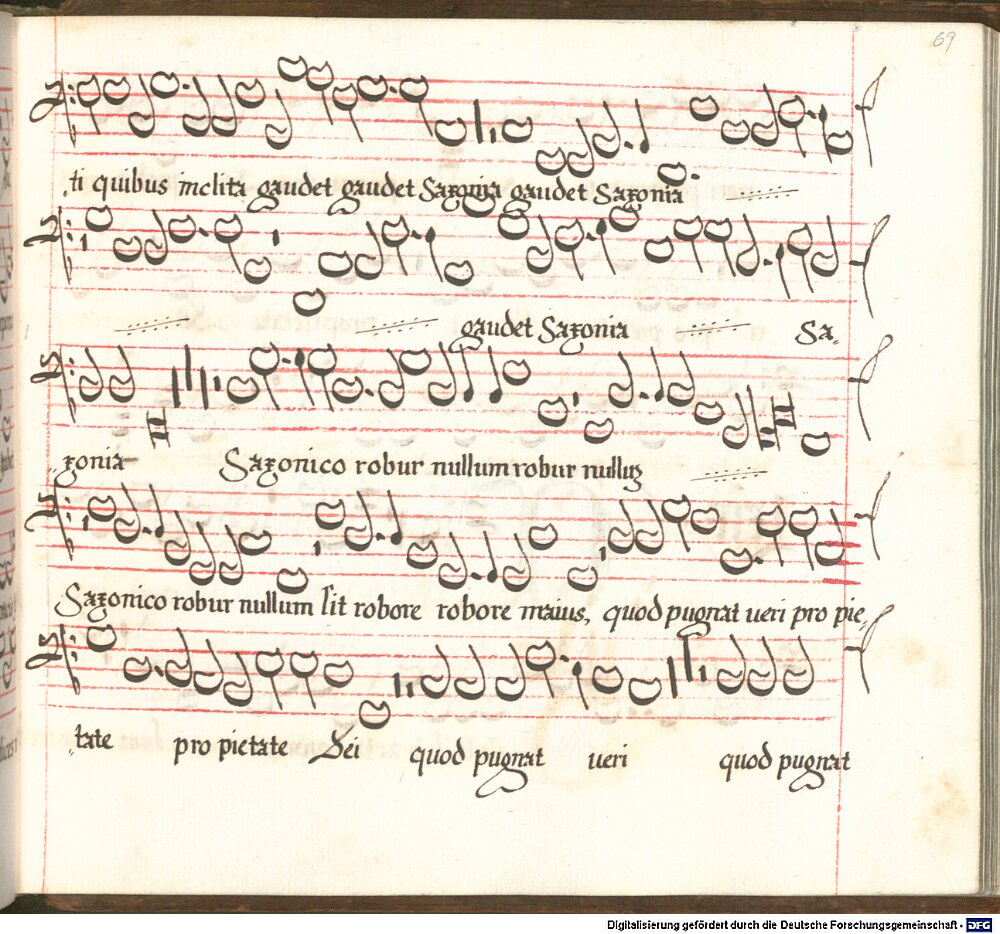 69
ti quibus inclita gaudet gaudet Saxonia gaudet Saxonia
gaudet Saxonia Sa-
xonia Saxonico robur nullum robur nulluʒ
Saxonico robur nullum sit robore robore maius, quod pugnat ueri pro pie-
tate pro pietate Dei quod pugnat ueri quod pugnat
Digitalisierung gefördert durch die Deutsche Forschungsgemeinschaft - DFG